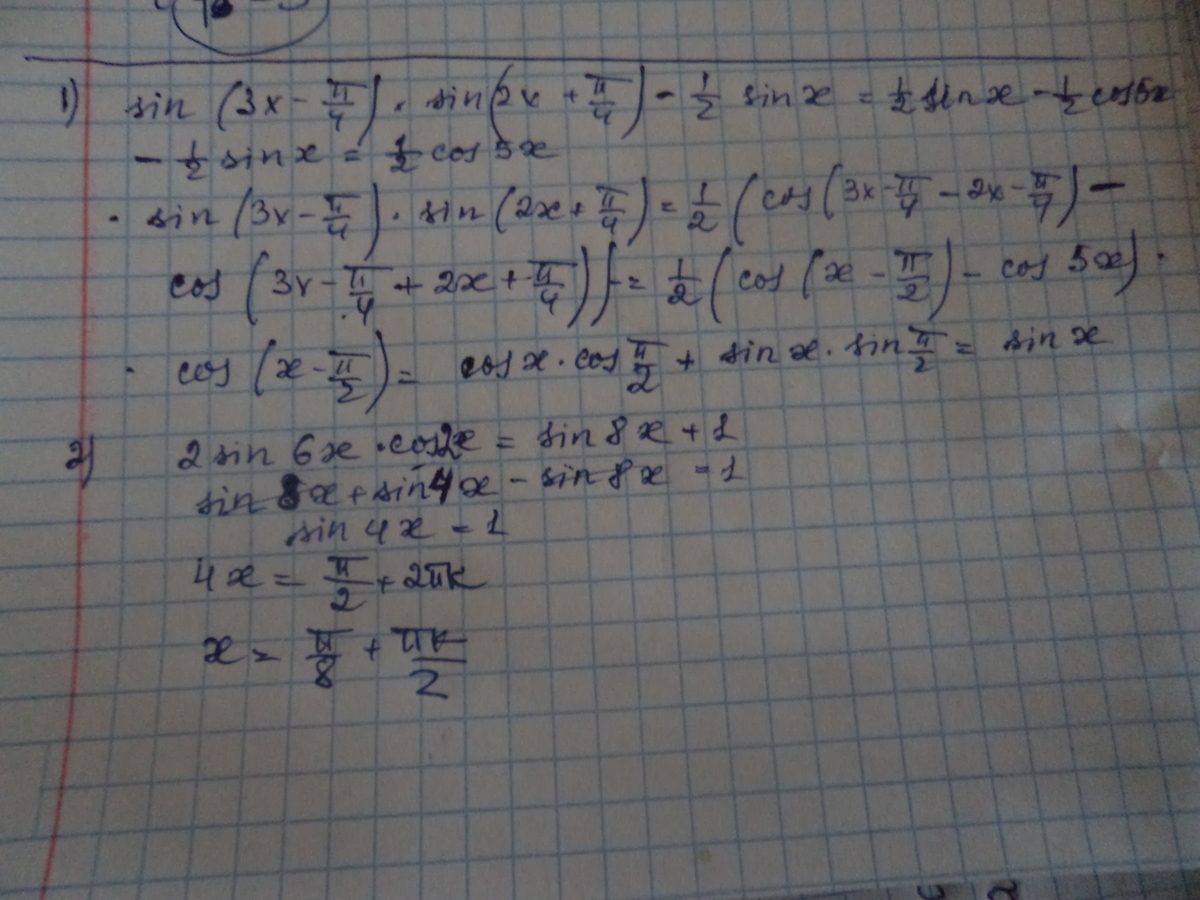 1) sin (3x - π/4) · sin(2x + π/4) - 1/2 sin x = 1/2 sin x - 1/2 cos 5x
- 1/2 sin x = 1/2 cos 5x
· sin (3x - π/4) · sin (2x + π/4) = 1/2 (cos (3x - π/4 - 2x - π/4) -
cos (3x - π/4 + 2x + π/4)) = 1/2 (cos (x - π/2) - cos 5x) ·
· cos (x - π/2) = cos x · cos π/2 + sin x · sin π/2 = sin x
2) 2 sin 6x · cos 2x = sin 8x + 1
sin 8x + sin 4x - sin 8x = 1
sin 4x = 1
4x = π/2 + 2πk
x = π/8 + πk/2